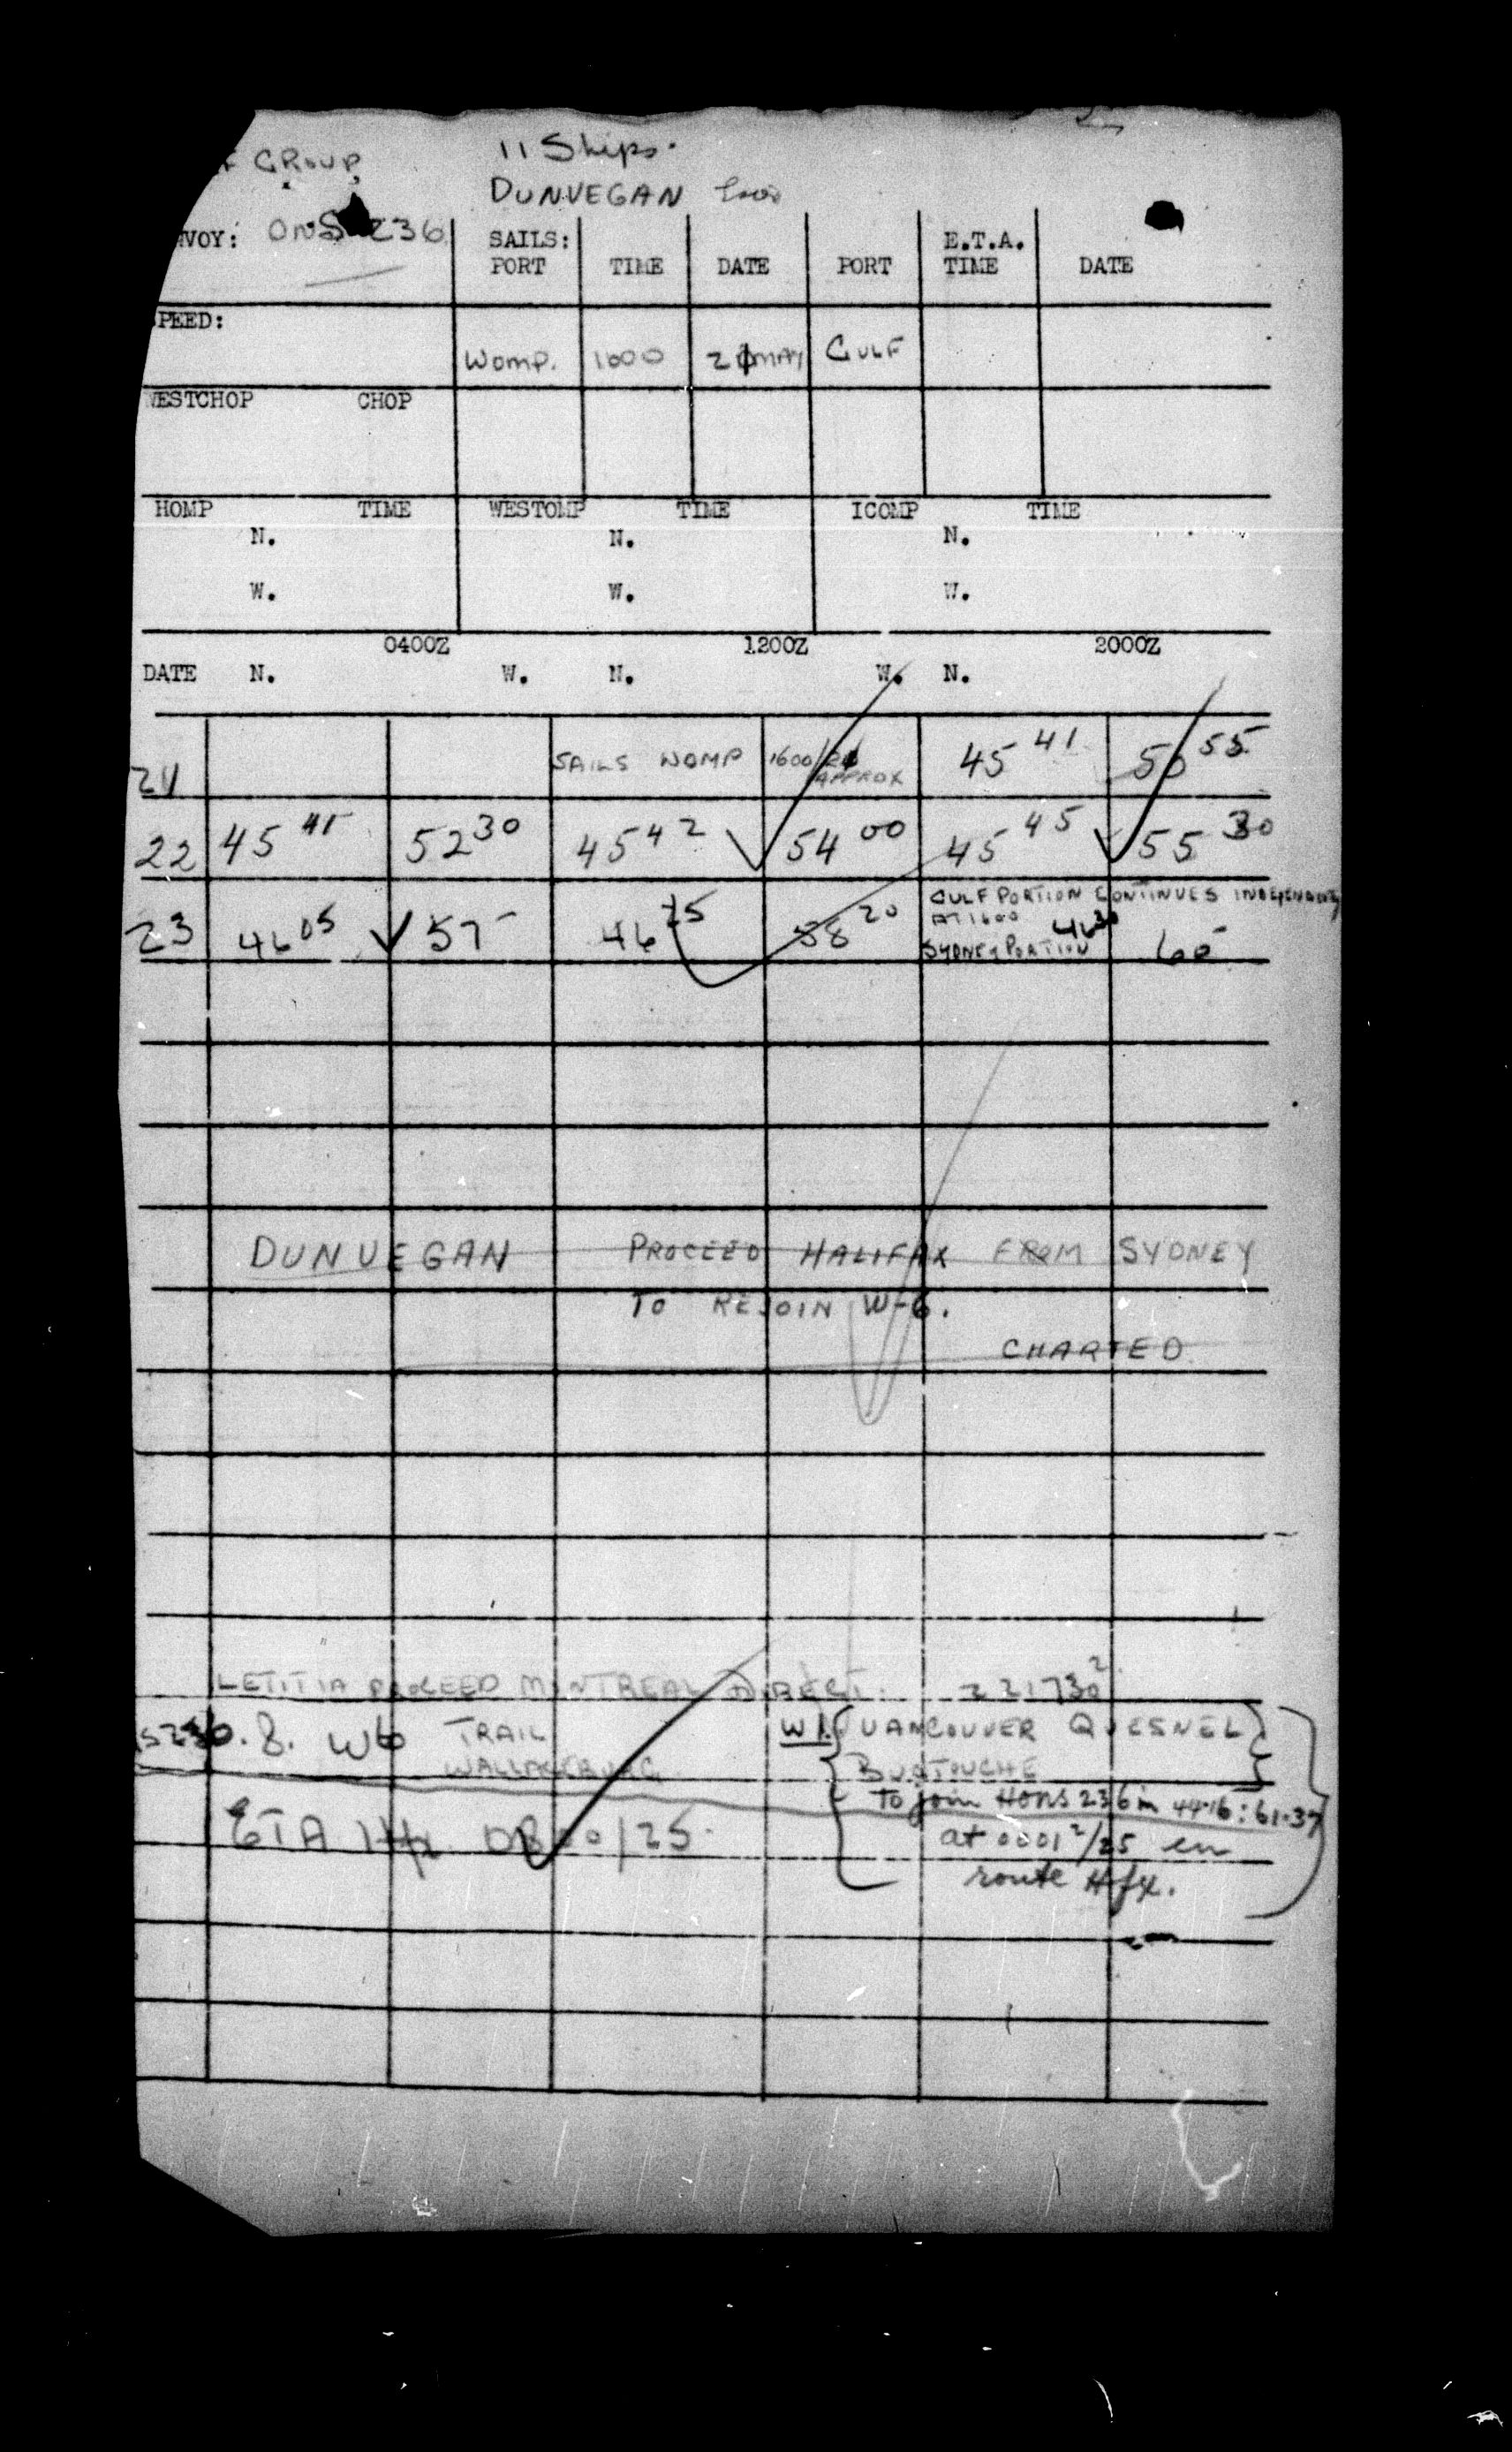 GROUP 11 Ships.
DUNVEGAN
VOY: ONS 236 SAILS: E.T.A.
PORT TIME DATE PORT TIME DATE
PEED:
WOMP. 1600 21 MAY GULF
WESTCHOP CHOP
HOMP TIME WESTOMP TIME ICOMP TIME
N. N. N.
W. W. W.
0400Z 1200Z 2000Z
DATE N. W. N. W. N.
21 SAILS WOMP 1600/21 APPROX 45 41 50 55
22 45 41 52 30 45 42 54 00 45 45 55 30
23 46 05 57 - 46 25 58 20 GULF PORTION CONTINUES INDEPENDENTLY
AT 1600
SYDNEY PORTION 46 30 60 -
DUNVEGAN PROCEED HALIFAX FROM SYDNEY
TO REJOIN W-6.
CHARTED
LETITIA PROCEED MONTREAL DIRECT. 221730Z
S236. 8. W6 TRAIL W1. VANCOUVER QUESNEL
WALLACEBURG BUCTOUCHE
to join HONS 236 in 44-16: 61-37
ETA Hfx 0800/25. at 0001Z/25 en
route Hfx.